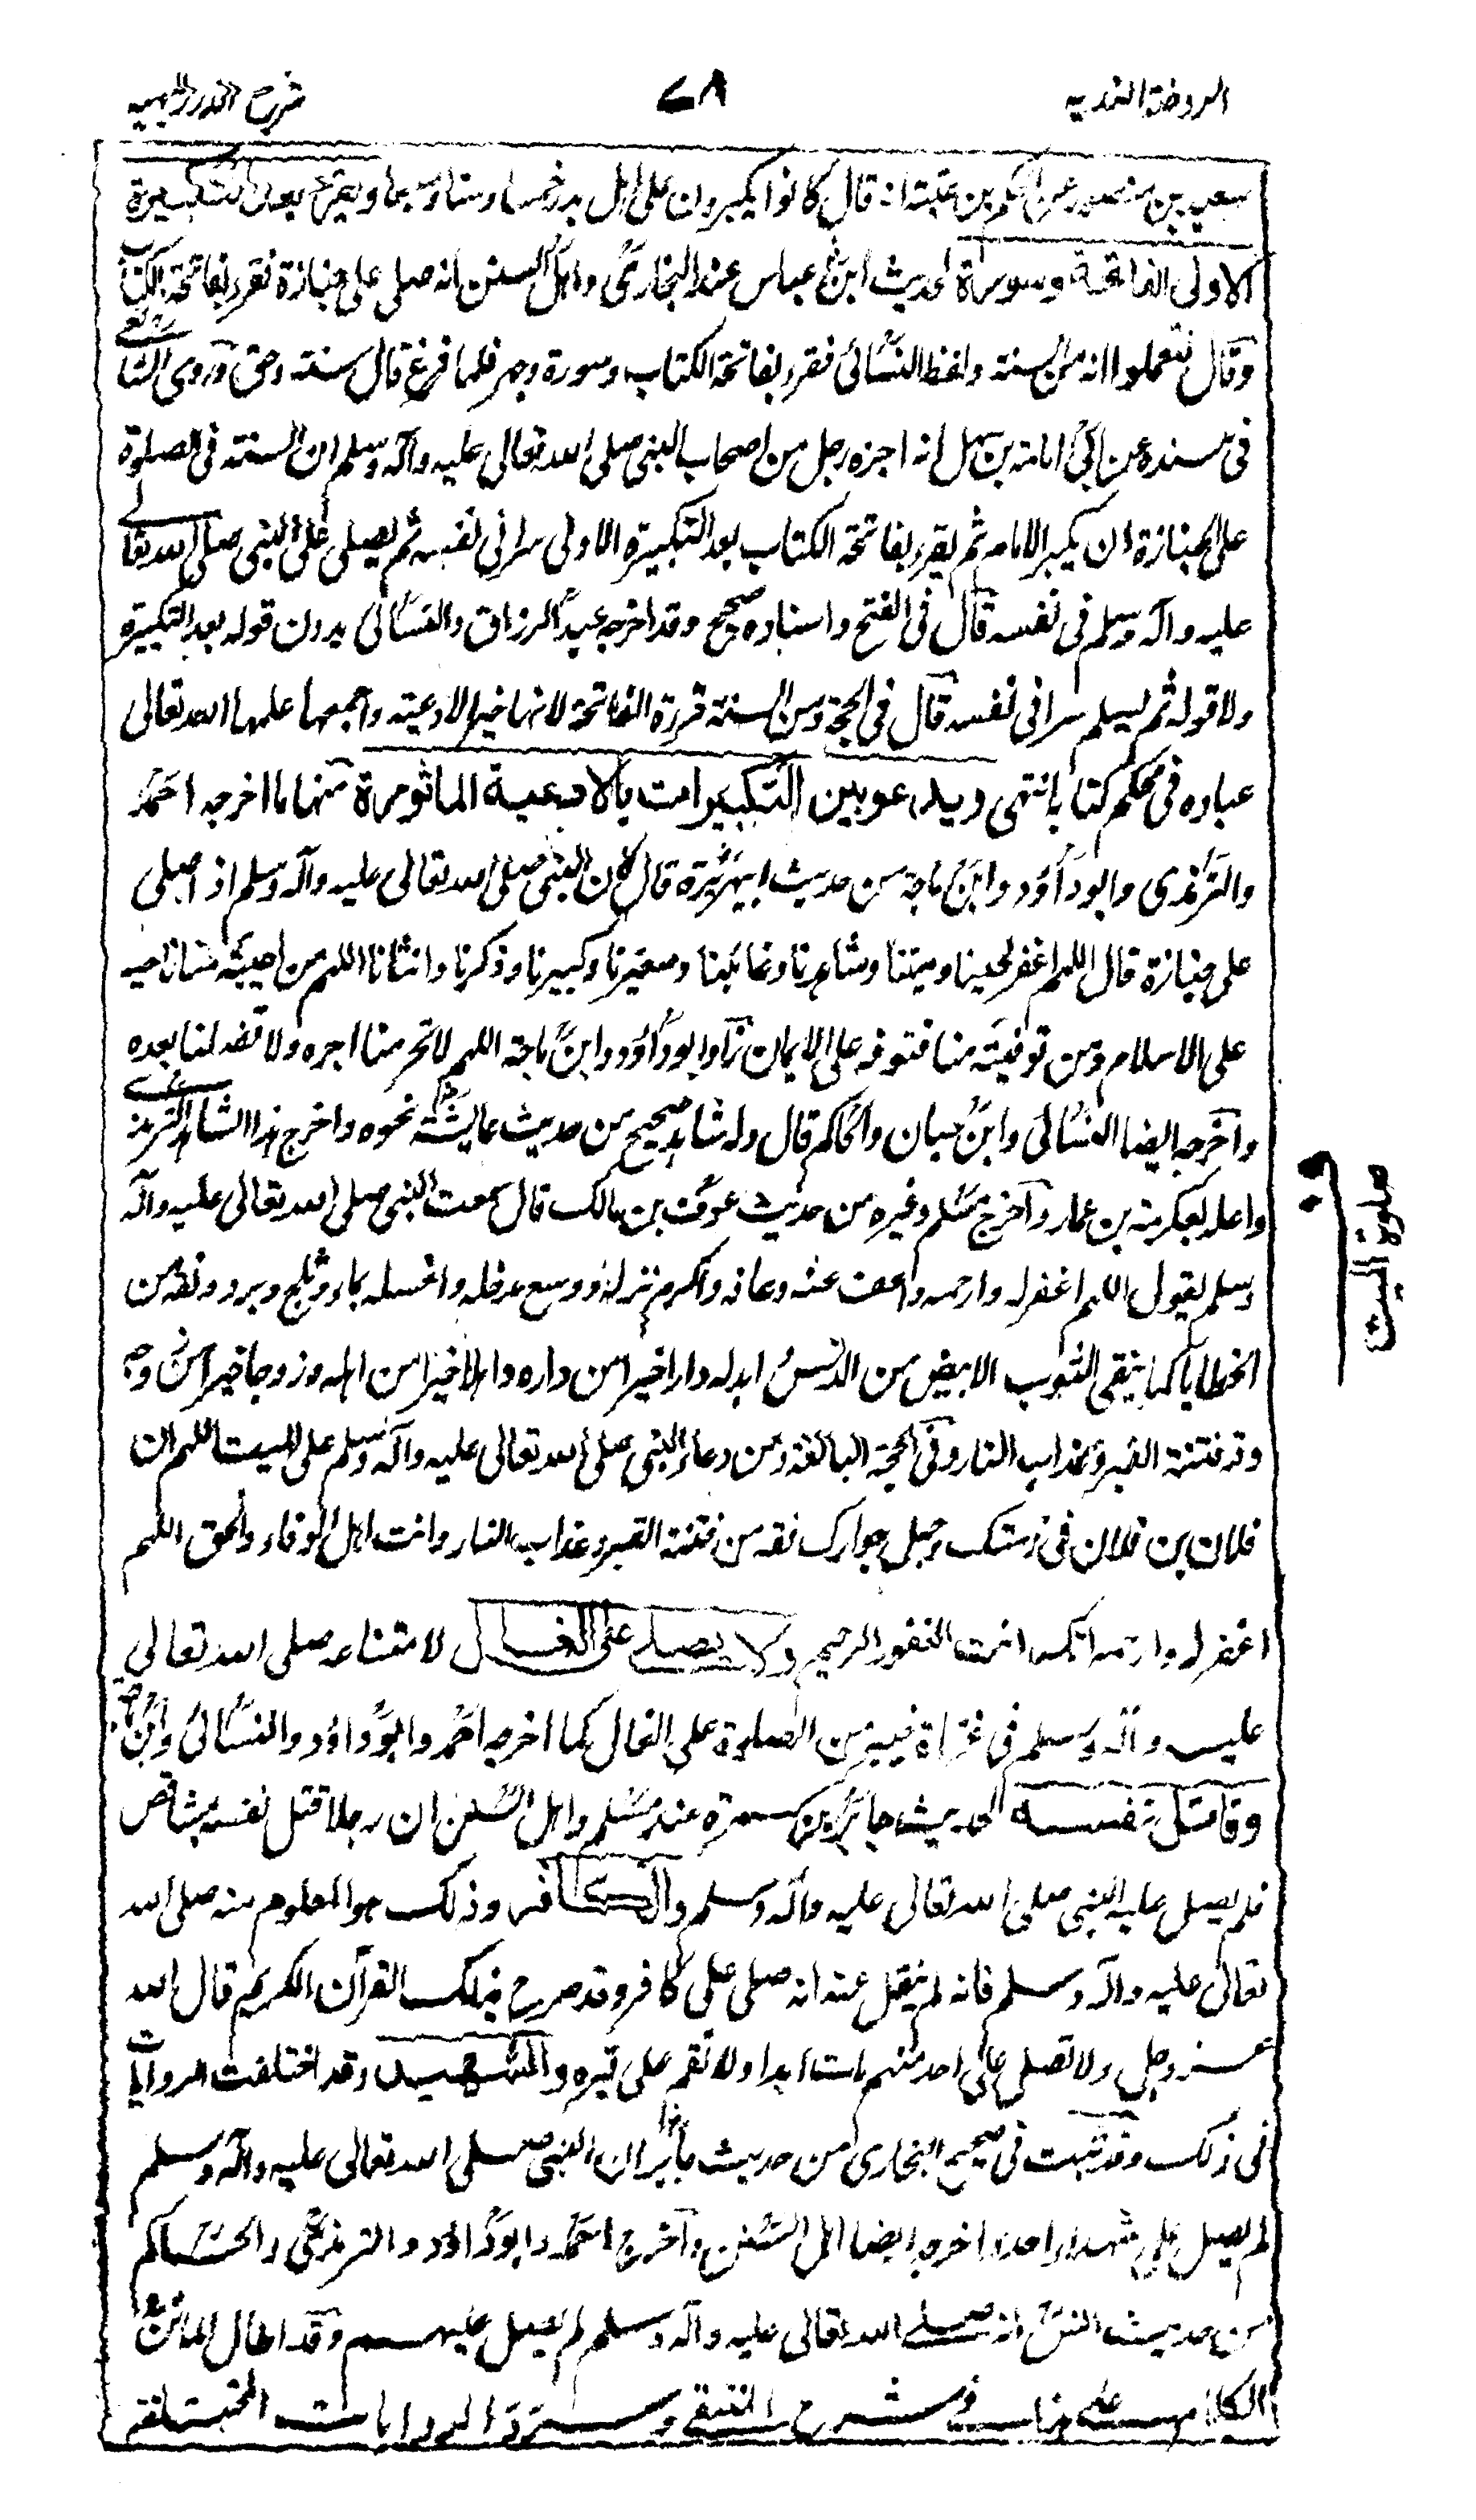 الروضة الندية
٧٨
شرح الدرر البهية
سعيد بن منصور عن الحكم بن عتيبة انه قال كانوا يكبرون على اهل بدر خمسا وستا وسبعا ويقرء بعد التكبيرة
الاولى الفاتحة وسورة لحديث ابن عباس عند البخارى واهل السنن انه صلى على جنازة فقرء بفاتحة الكتاب
وقال لتعلموا انه من السنة ولفظ النسائى فقرء بفاتحة الكتاب وسورة وجهر فلما فرغ قال سنة وحق وروى الشافعي
فى مسنده عن ابى امامة بن سهل انه اخبره رجل من اصحاب النبى صلى الله تعالى عليه وآله وسلم ان السنة فى الصلوة
على الجنازة ان يكبر الامام ثم يقرء بفاتحة الكتاب بعد التكبيرة الاولى سرا فى نفسه ثم يصلى على النبى صلى الله تعالى
عليه وآله وسلم فى نفسه قال فى الفتح واسناده صحيح وقد اخرجه عبد الرزاق والنسائى بدون قوله بعد التكبيرة
ولا قوله ثم يسلم سرا فى نفسه قال فى الحجة ومن السنة قرءة الفاتحة لانها خير الادعية واجمعها علمها الله تعالى
عباده فى محكم كتابه انتهى ويدعو بين التكبيرات بالادعية الماثورة منها ما اخرجه احمد
والترمذى وابو داؤد وابن ماجة من حديث ابيهريرة قال كان النبى صلى الله تعالى عليه وآله وسلم اذا صلى
على جنازة قال اللهم اغفر لحينا وميتنا وشاهدنا وغائبنا وصغيرنا وكبيرنا وذكرنا وانثانا اللهم من احييته منا فاحيه
على الاسلام ومن توفيته منا فتوفه على الايمان زاد ابو داؤد وابن ماجة اللهم لا تحرمنا اجره ولا تضلنا بعده
واخرجه ايضا النسائى وابن حبان والحاكم قال وله شاهد صحيح من حديث عايشة نحوه واخرج هذا الشاهد الترمذي
واعله بعكرمة بن عمار واخرج مسلم وغيره من حديث عوف بن مالك قال سمعت النبى صلى الله تعالى عليه وآله
وسلم يقول اللهم اغفر له وارحمه واعف عنه وعافه واكرم نزله ووسع مدخله واغسله بماء وثلج وبرد ونقه من
الخطايا كما ينقى الثوب الابيض من الدنس ابدله دارا خيرا من داره واهلا خيرا من اهله وزوجا خيرا من زوجه
وقه فتنة القبر وعذاب النار وفى الحجة البالغة ومن دعاء النبى صلى الله تعالى عليه وآله وسلم على الميت اللهم ان
فلان بن فلان فى ذمتك وحبل جوارك فقه من فتنة القبر وعذاب النار وانت اهل الوفاء والحق اللهم
اغفر له وارحمه انك انت الغفور الرحيم ولا يصلى على الغال لامتناعه صلى الله تعالى
عليه وآله وسلم فى غزاة خيبر من الصلوة على الغال كما اخرجه احمد وابو داؤد والنسائى وابن ماجة
وقاتل نفسه لحديث جابر بن سمرة عند مسلم واهل السنن ان رجلا قتل نفسه بمشاقص
فلم يصل عليه النبى صلى الله تعالى عليه وآله وسلم والكافر وذلك هو المعلوم منه صلى الله
تعالى عليه وآله وسلم فانه لم ينقل عنه انه صلى على كافر وقد صرح بذلك القرآن الكريم قال الله
عز وجل ولا تصلى على احد منهم مات ابدا ولا تقم على قبره والشهيد وقد اختلفت الروايات
فى ذلك وقد ثبت فى صحيح البخارى من حديث جابر ان النبى صلى الله تعالى عليه وآله وسلم
لم يصل على شهداء احد واخرجه ايضا اهل السنن واخرج احمد وابو داؤد والترمذى والحاكم
من حديث انس انه صلى الله تعالى عليه وآله وسلم لم يصل عليهم وقد اطال الماتن
الكلام على هذا فى شرح المنتقى وسرد الروايات المختلفة
صلوة الميت